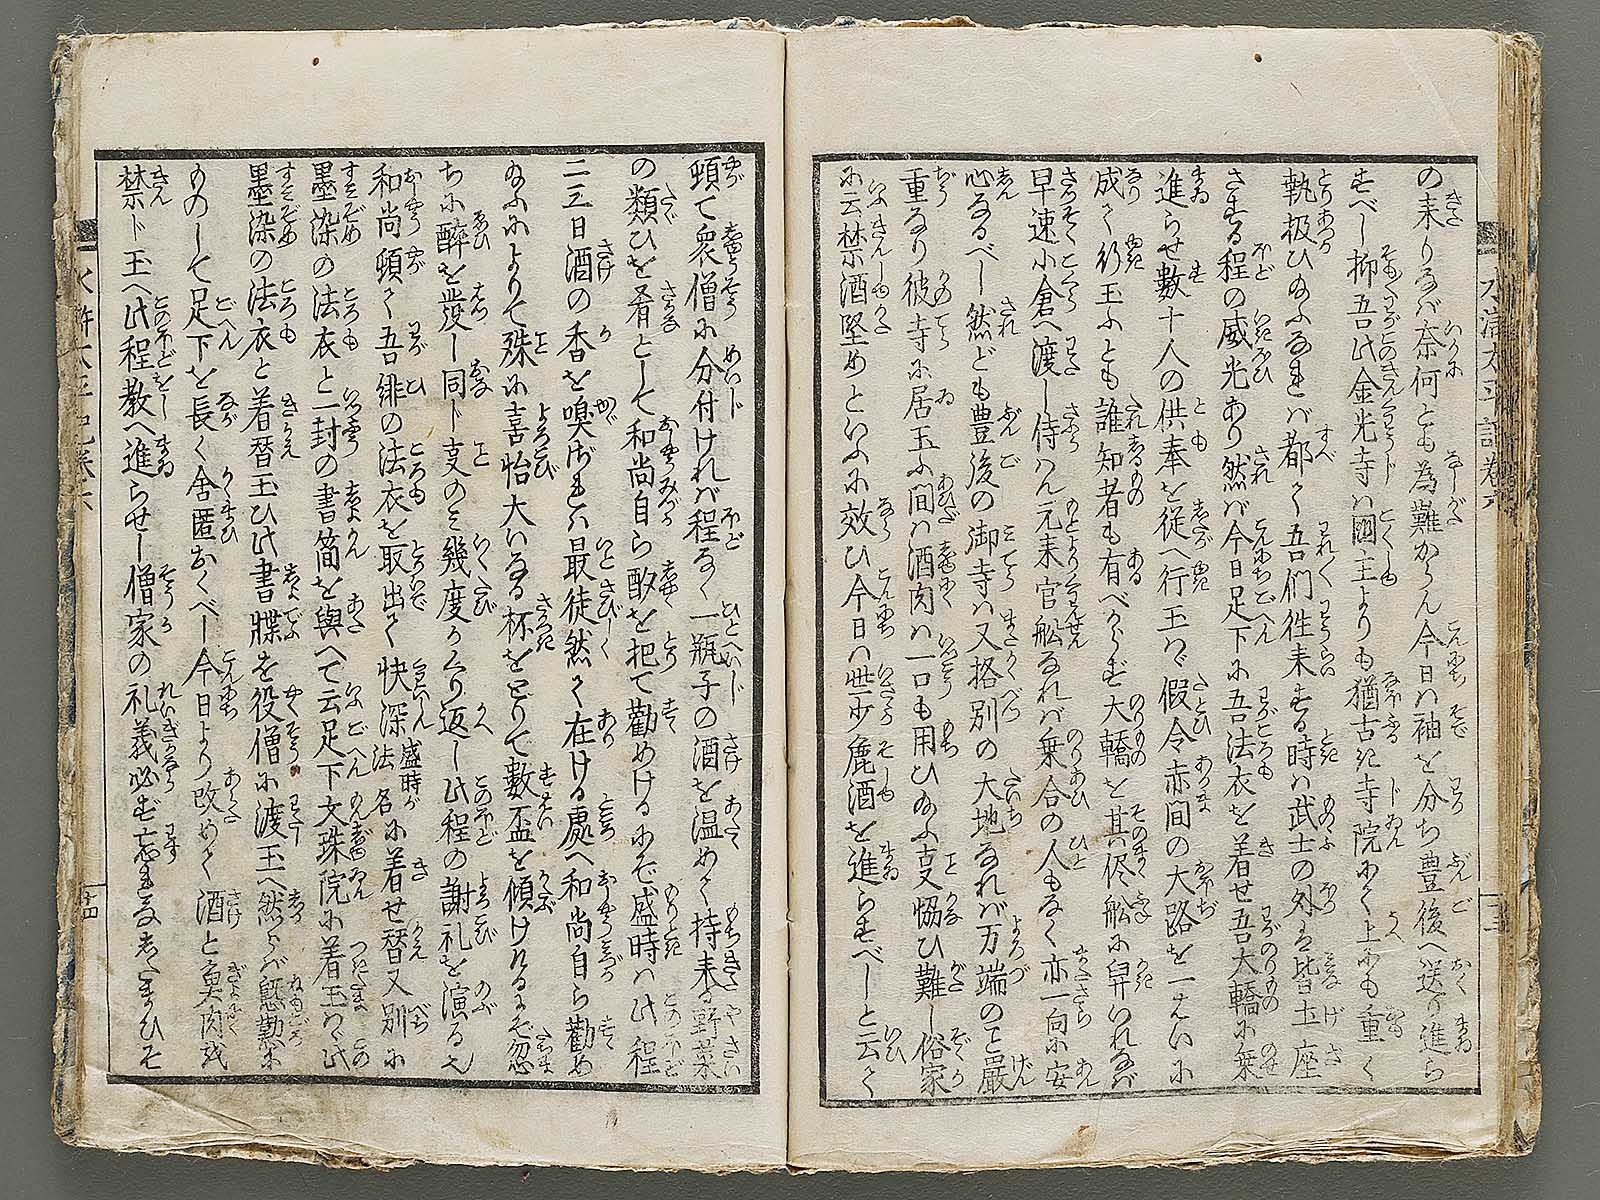 の来りなバ奈何とも為難からん今日ハ袖を分ち豊後へ送り進ら
すべし抑吾此金光寺ハ國主よりも猶古き寺院にて上にも重く
執扱ひ給ふなれバ都て吾們往来する時ハ武士の外は皆土座
さする程の威光あり然バ今日足下に吾法衣を着せ吾大轎に乗
進らせ數十人の供奉を従へ行玉はゞ假令赤間の大路を一ぱいに
成て行玉ふとも誰知者も有べからず大轎を其侭舩に舁いれなバ
早速小倉へ渡し侍はん元来官舩なれバ乗合の人もなく亦一向に安
心なるべし然ども豊後の御寺ハ又格別の大地なれバ万端のこと嚴
重なり彼寺に居玉ふ間ハ酒肉ハ一口も用ひ給ふ支協ひ難し俗家
に云禁酒堅めといふに效ひ今日ハ些少麁酒を進らすべしと云て
水滸太平記卷六
十三
頓て衆僧に分付けれバ程なく一瓶子の酒を温めて持来る野菜
の類ひを肴として和尚自ら酌を把て勸めけるにぞ盛時ハ此程
二三日酒の香を嗅ざれハ最徒然て在ける處へ和尚自ら勸め
給ふによりて殊に喜怡大いなる杯をとりて數盃を傾けけるにぞ忽
ちに醉を發し同ト支のミ幾度かくり返し此程の謝礼を演るん
和尚頓て吾緋の法衣を取出て快深盛時が法名に着せ替又別に
墨染の法衣と一封の書簡を與へて云足下文珠院に着玉はゞ此
墨染の法衣と着替玉ひ此書牒を役僧に渡玉へ然らバ慇懃に
ものして足下を長く舎匿おくべし今日より改めて酒と魚肉を
禁ト玉へ此程教へ進らせし僧家の礼義必ず忘れなしたまひそ
水滸太平記卷六
十四